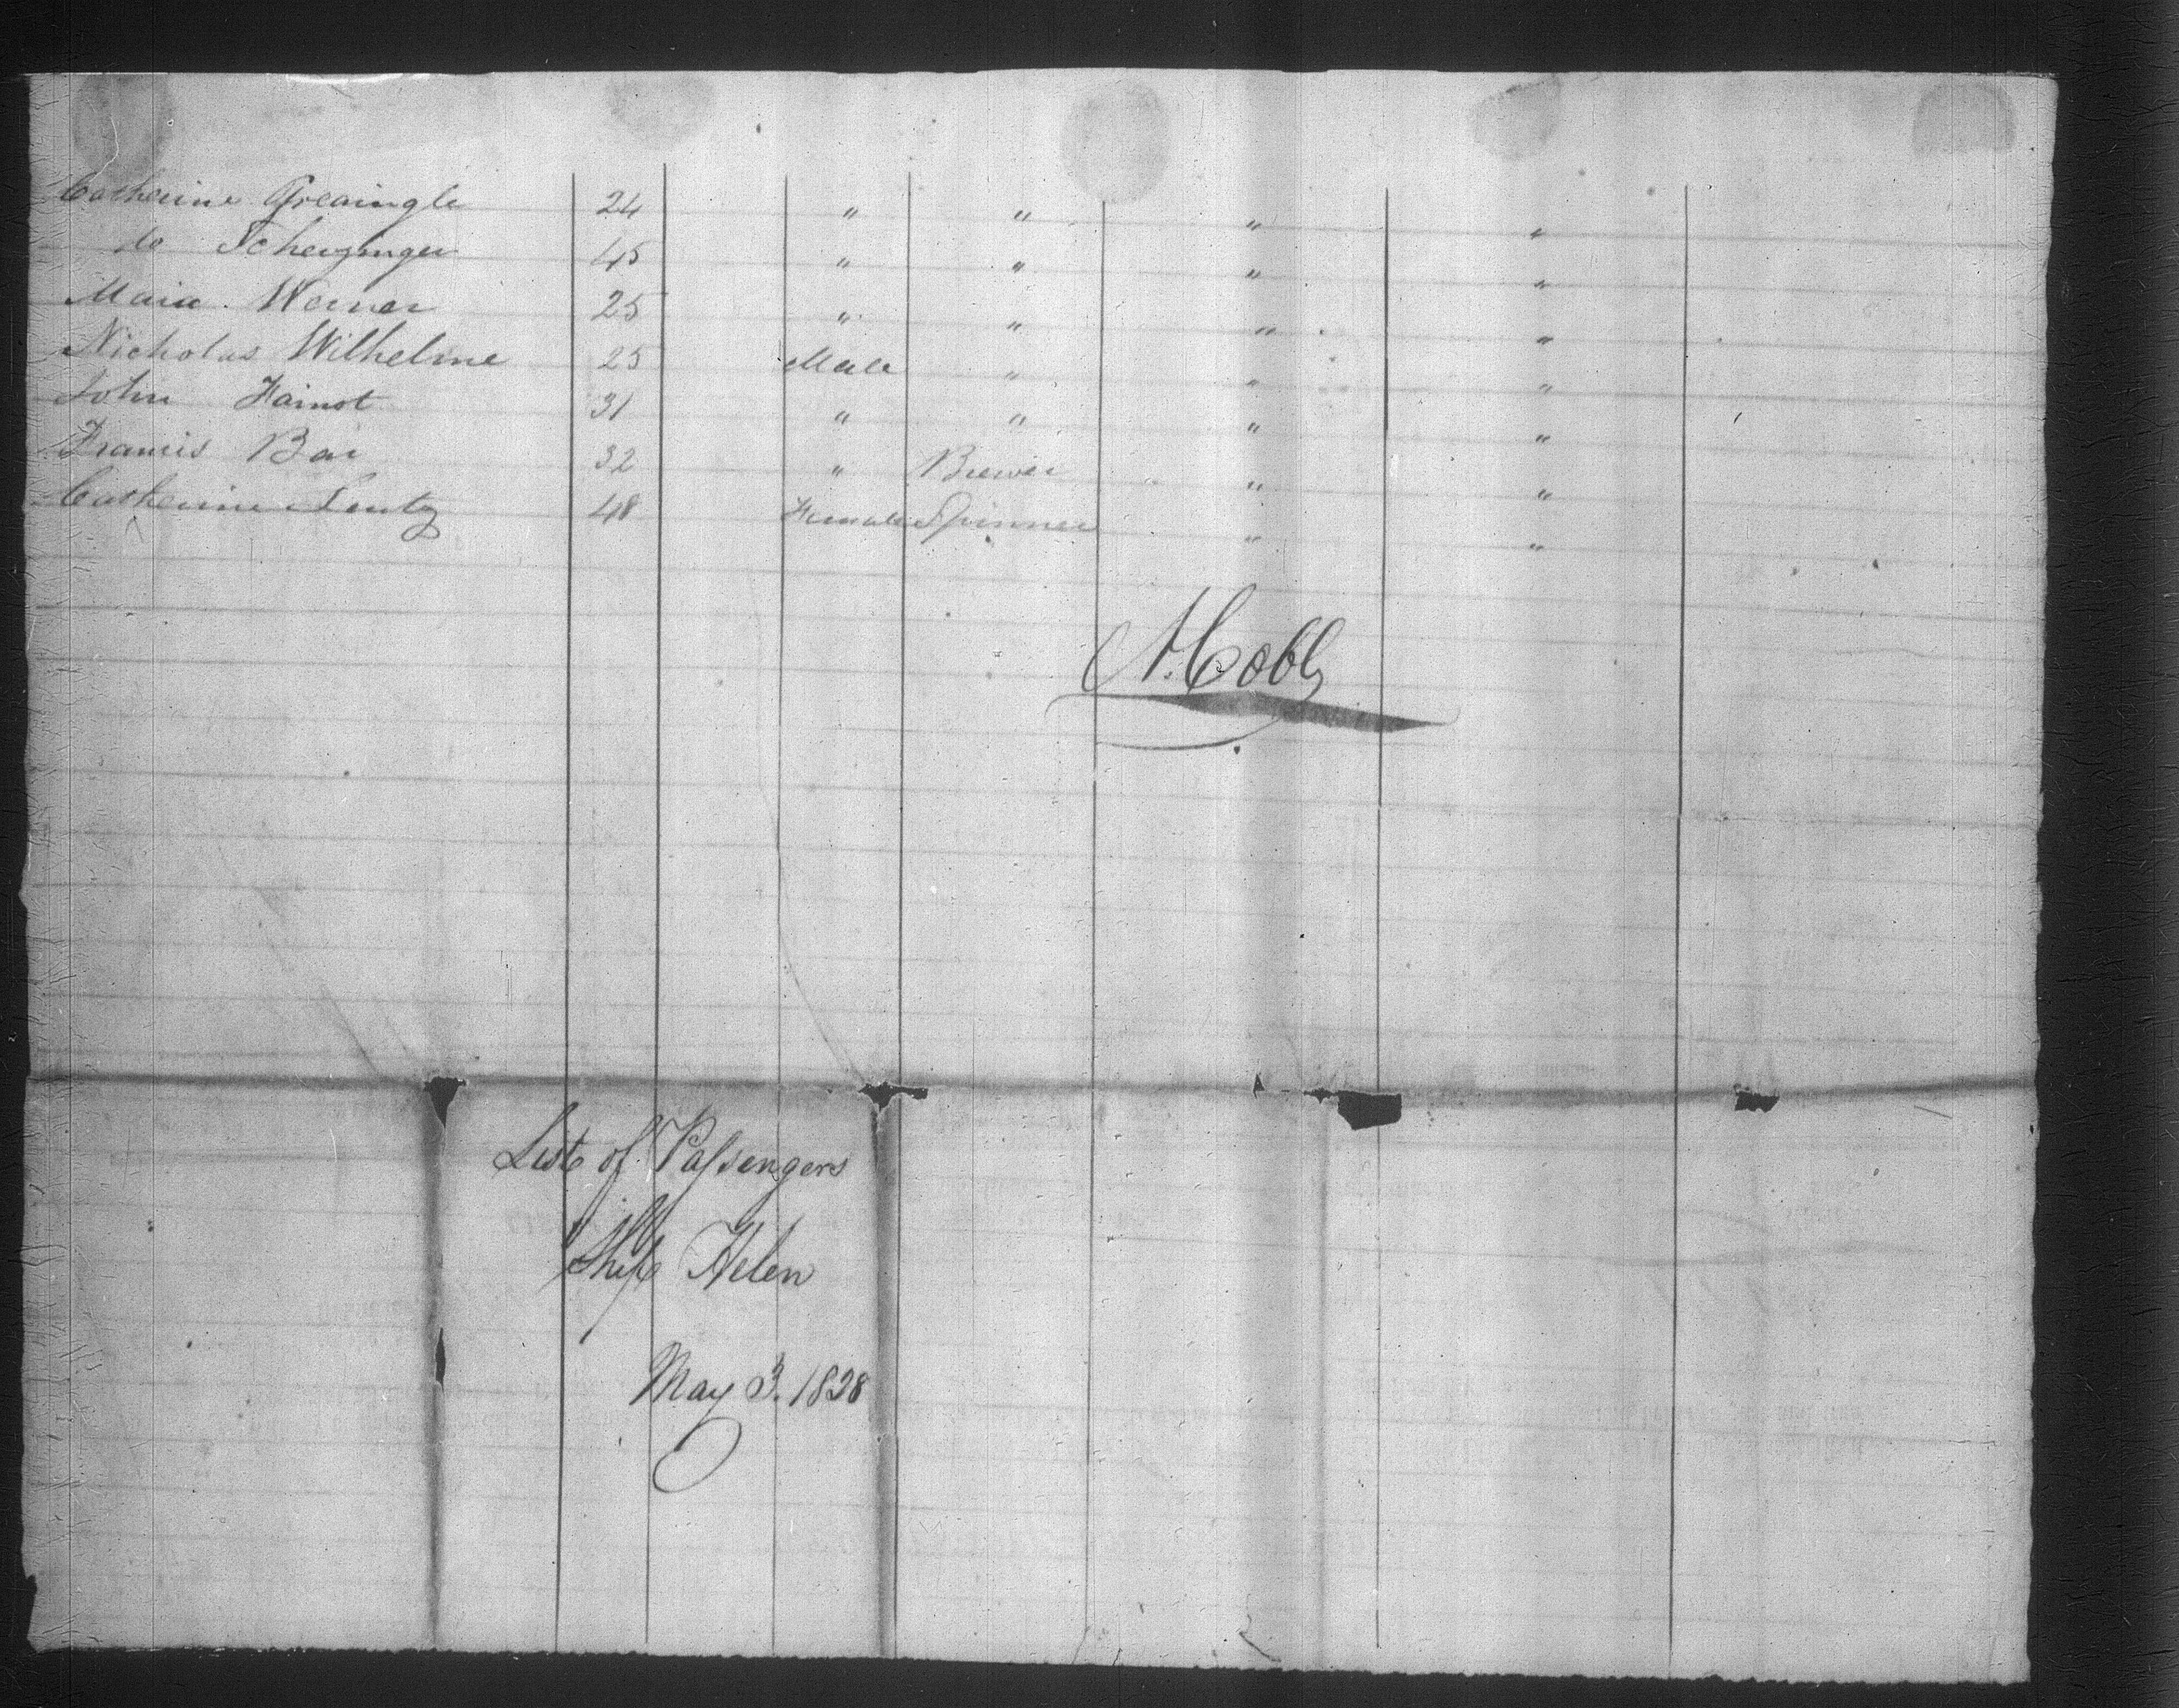 Catherine Greaingle 24 " " " "
do Scherzinger 45 " " " "
Maria Werner 25 " " " "
Nicholas Wilhelme 25 Male " " "
John Hainot 31 " " " "
Francis Bar 32 " Brewer " "
Catherine Lentz 48 Female Spinner " "
N. Cobb
List of Passengers
Ship Helen
May 3. 1828